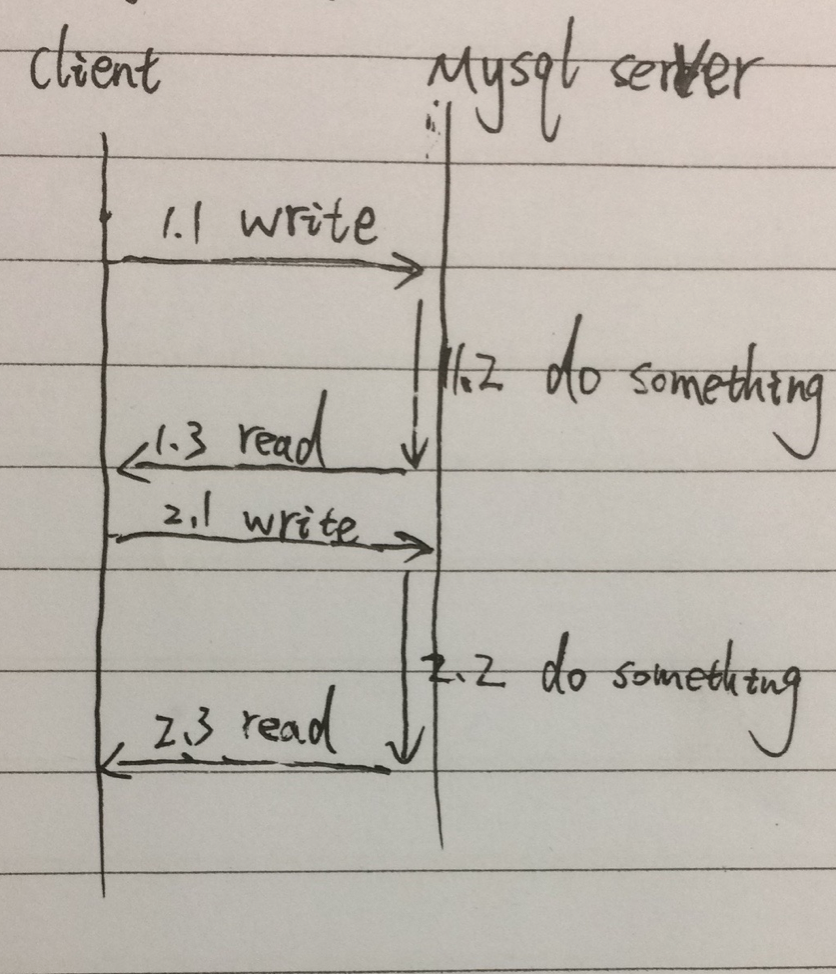 client
Mysql server
1.1 write
1.2 do something
1.3 read
2.1 write
2.2 do something
2.3 read